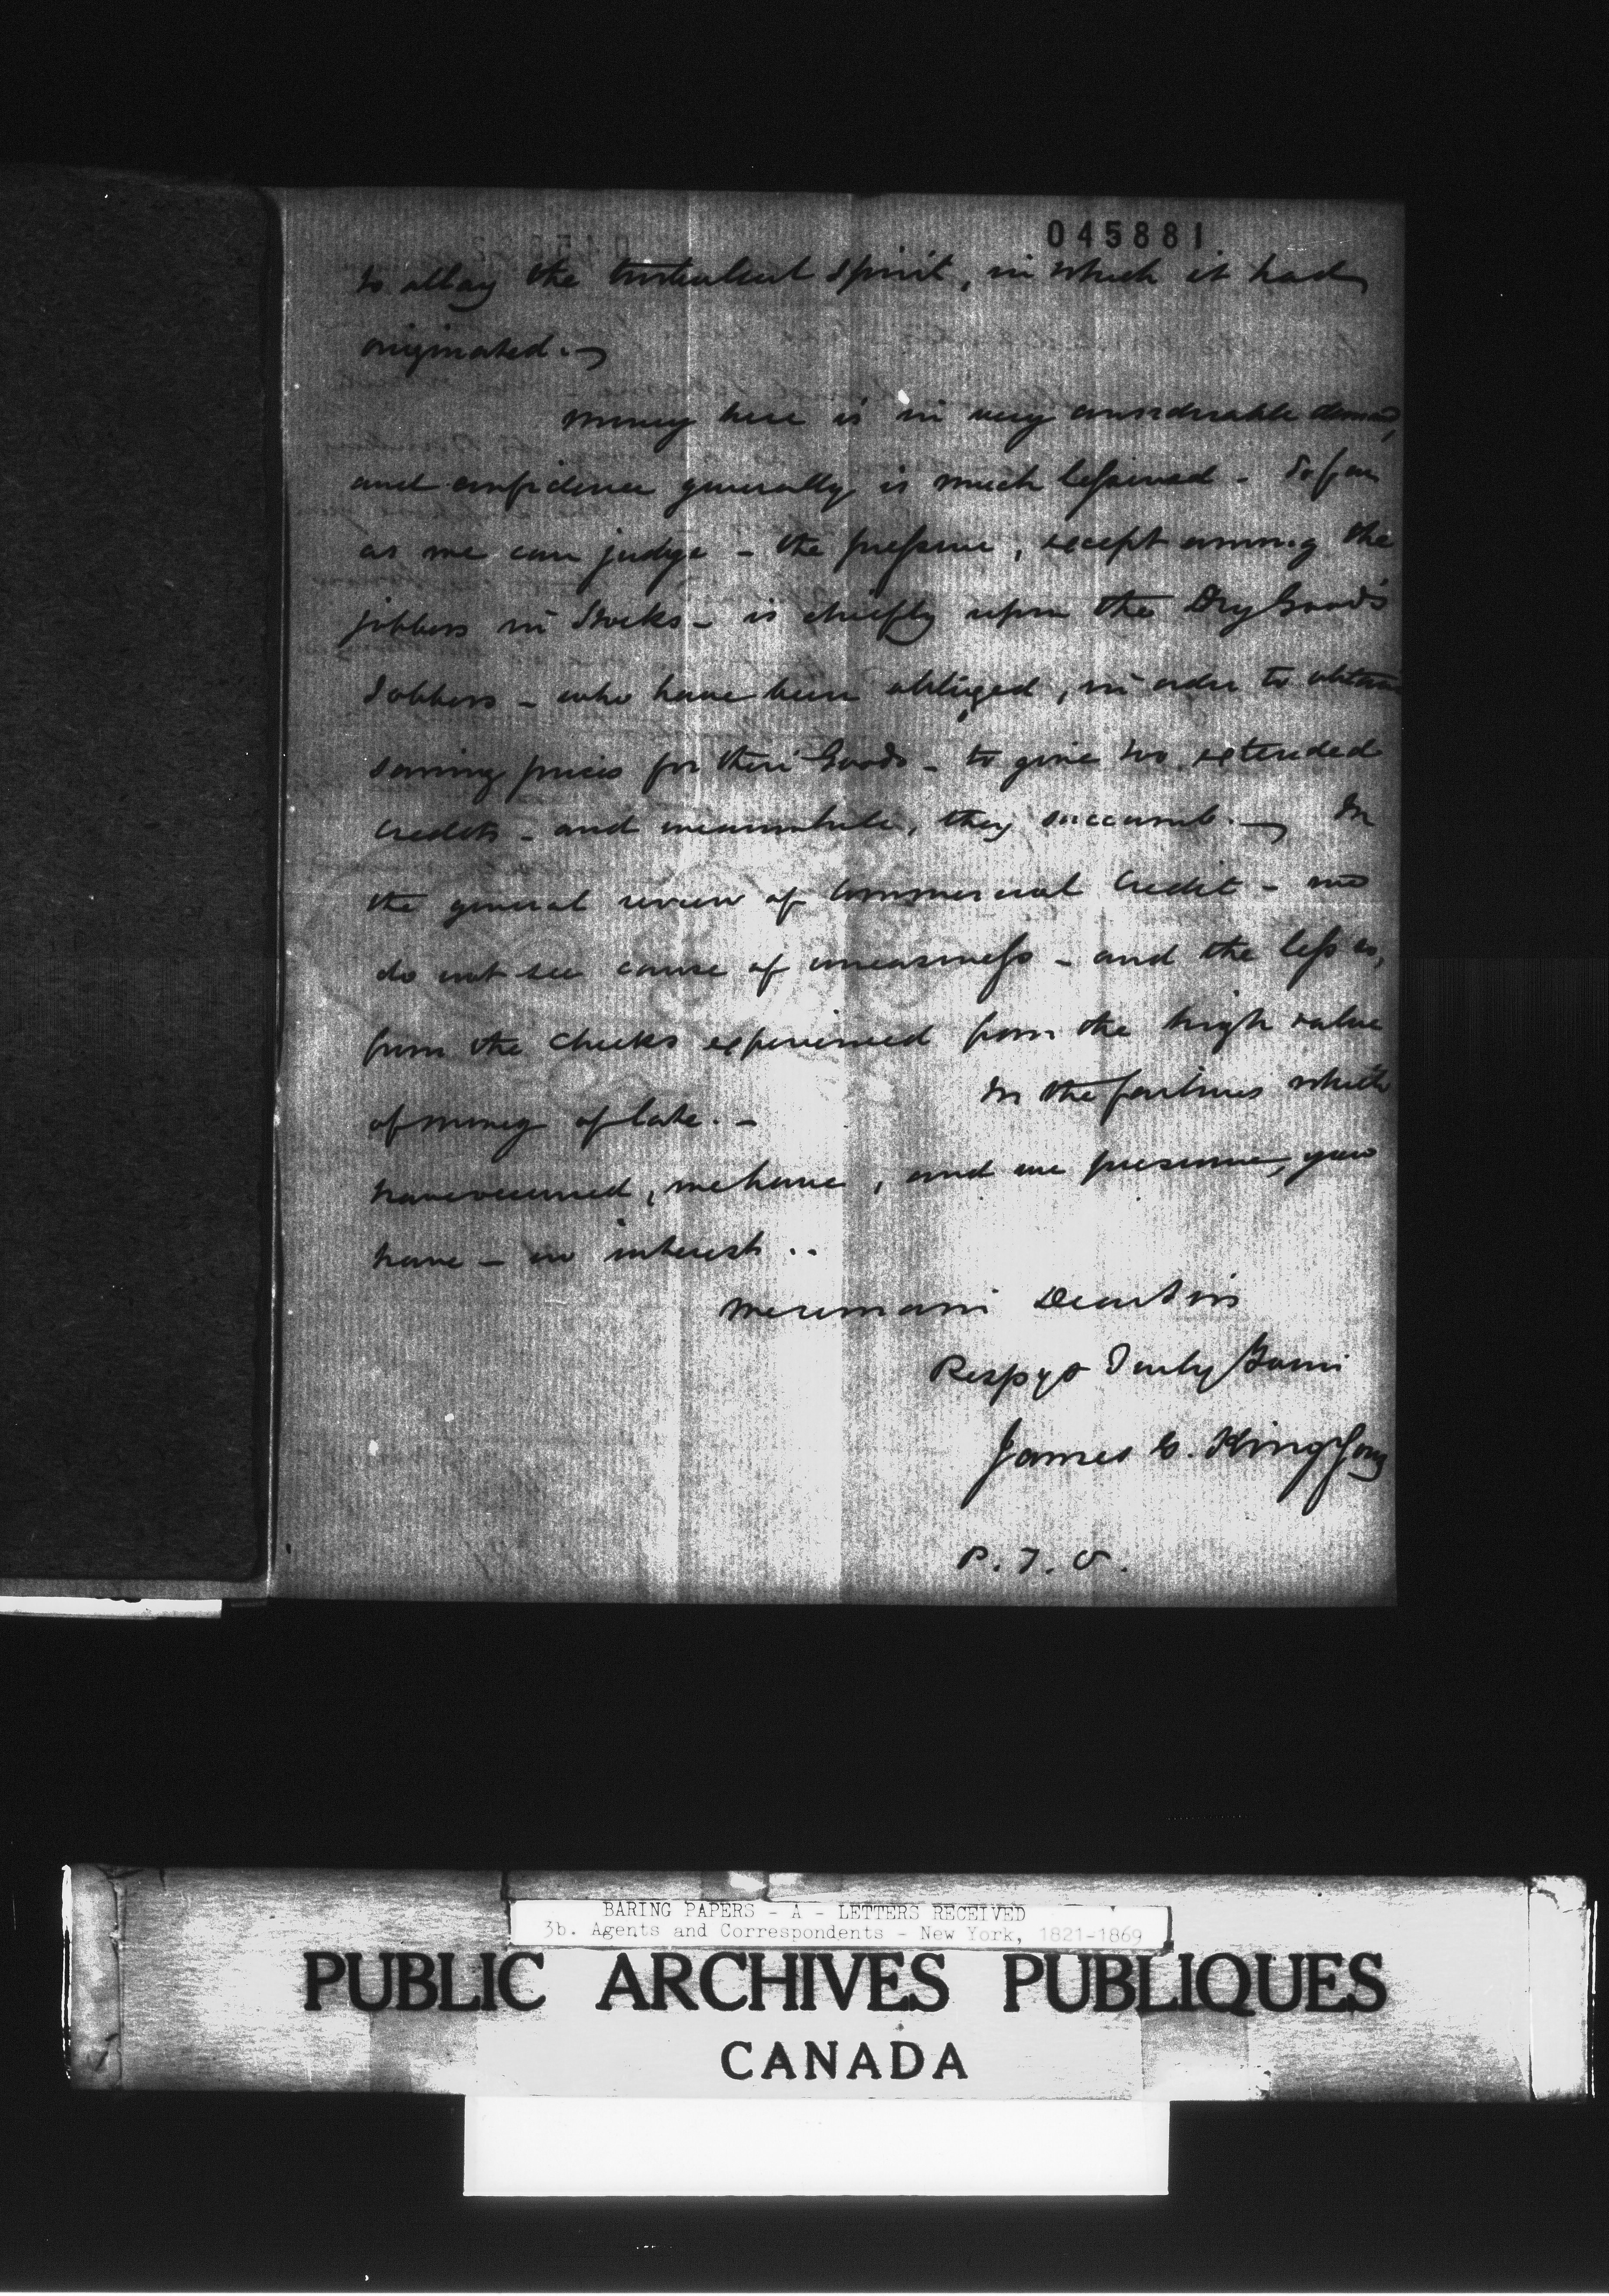 045881
to allay the turbulent spirit, in which it had
originated. —
Money here is in very considerable demand,
and confidence generally is much lessened - So far
as we can judge - the pressure, except among the
jobbers in Stocks - is chiefly upon the Dry Goods
Jobbers - who have been obliged, in order to obtain
saving prices for their Goods - to give too extended
credits - and meanwhile, they succumb. — In
the general review of Commercial Credit - we
do not see cause of uneasiness - and the less so,
from the checks experienced from the high value
of money of late. -
In the failures which
have occurred, we have, and we presume, you
have - no interest ..
We remain Dear Sirs
Respy & Truly Yours
James G. King & Sons
P. T. O.
BARING PAPERS - A - LETTERS RECEIVED
3b. Agents and Correspondents - New York, 1821-1869
PUBLIC ARCHIVES PUBLIQUES
CANADA